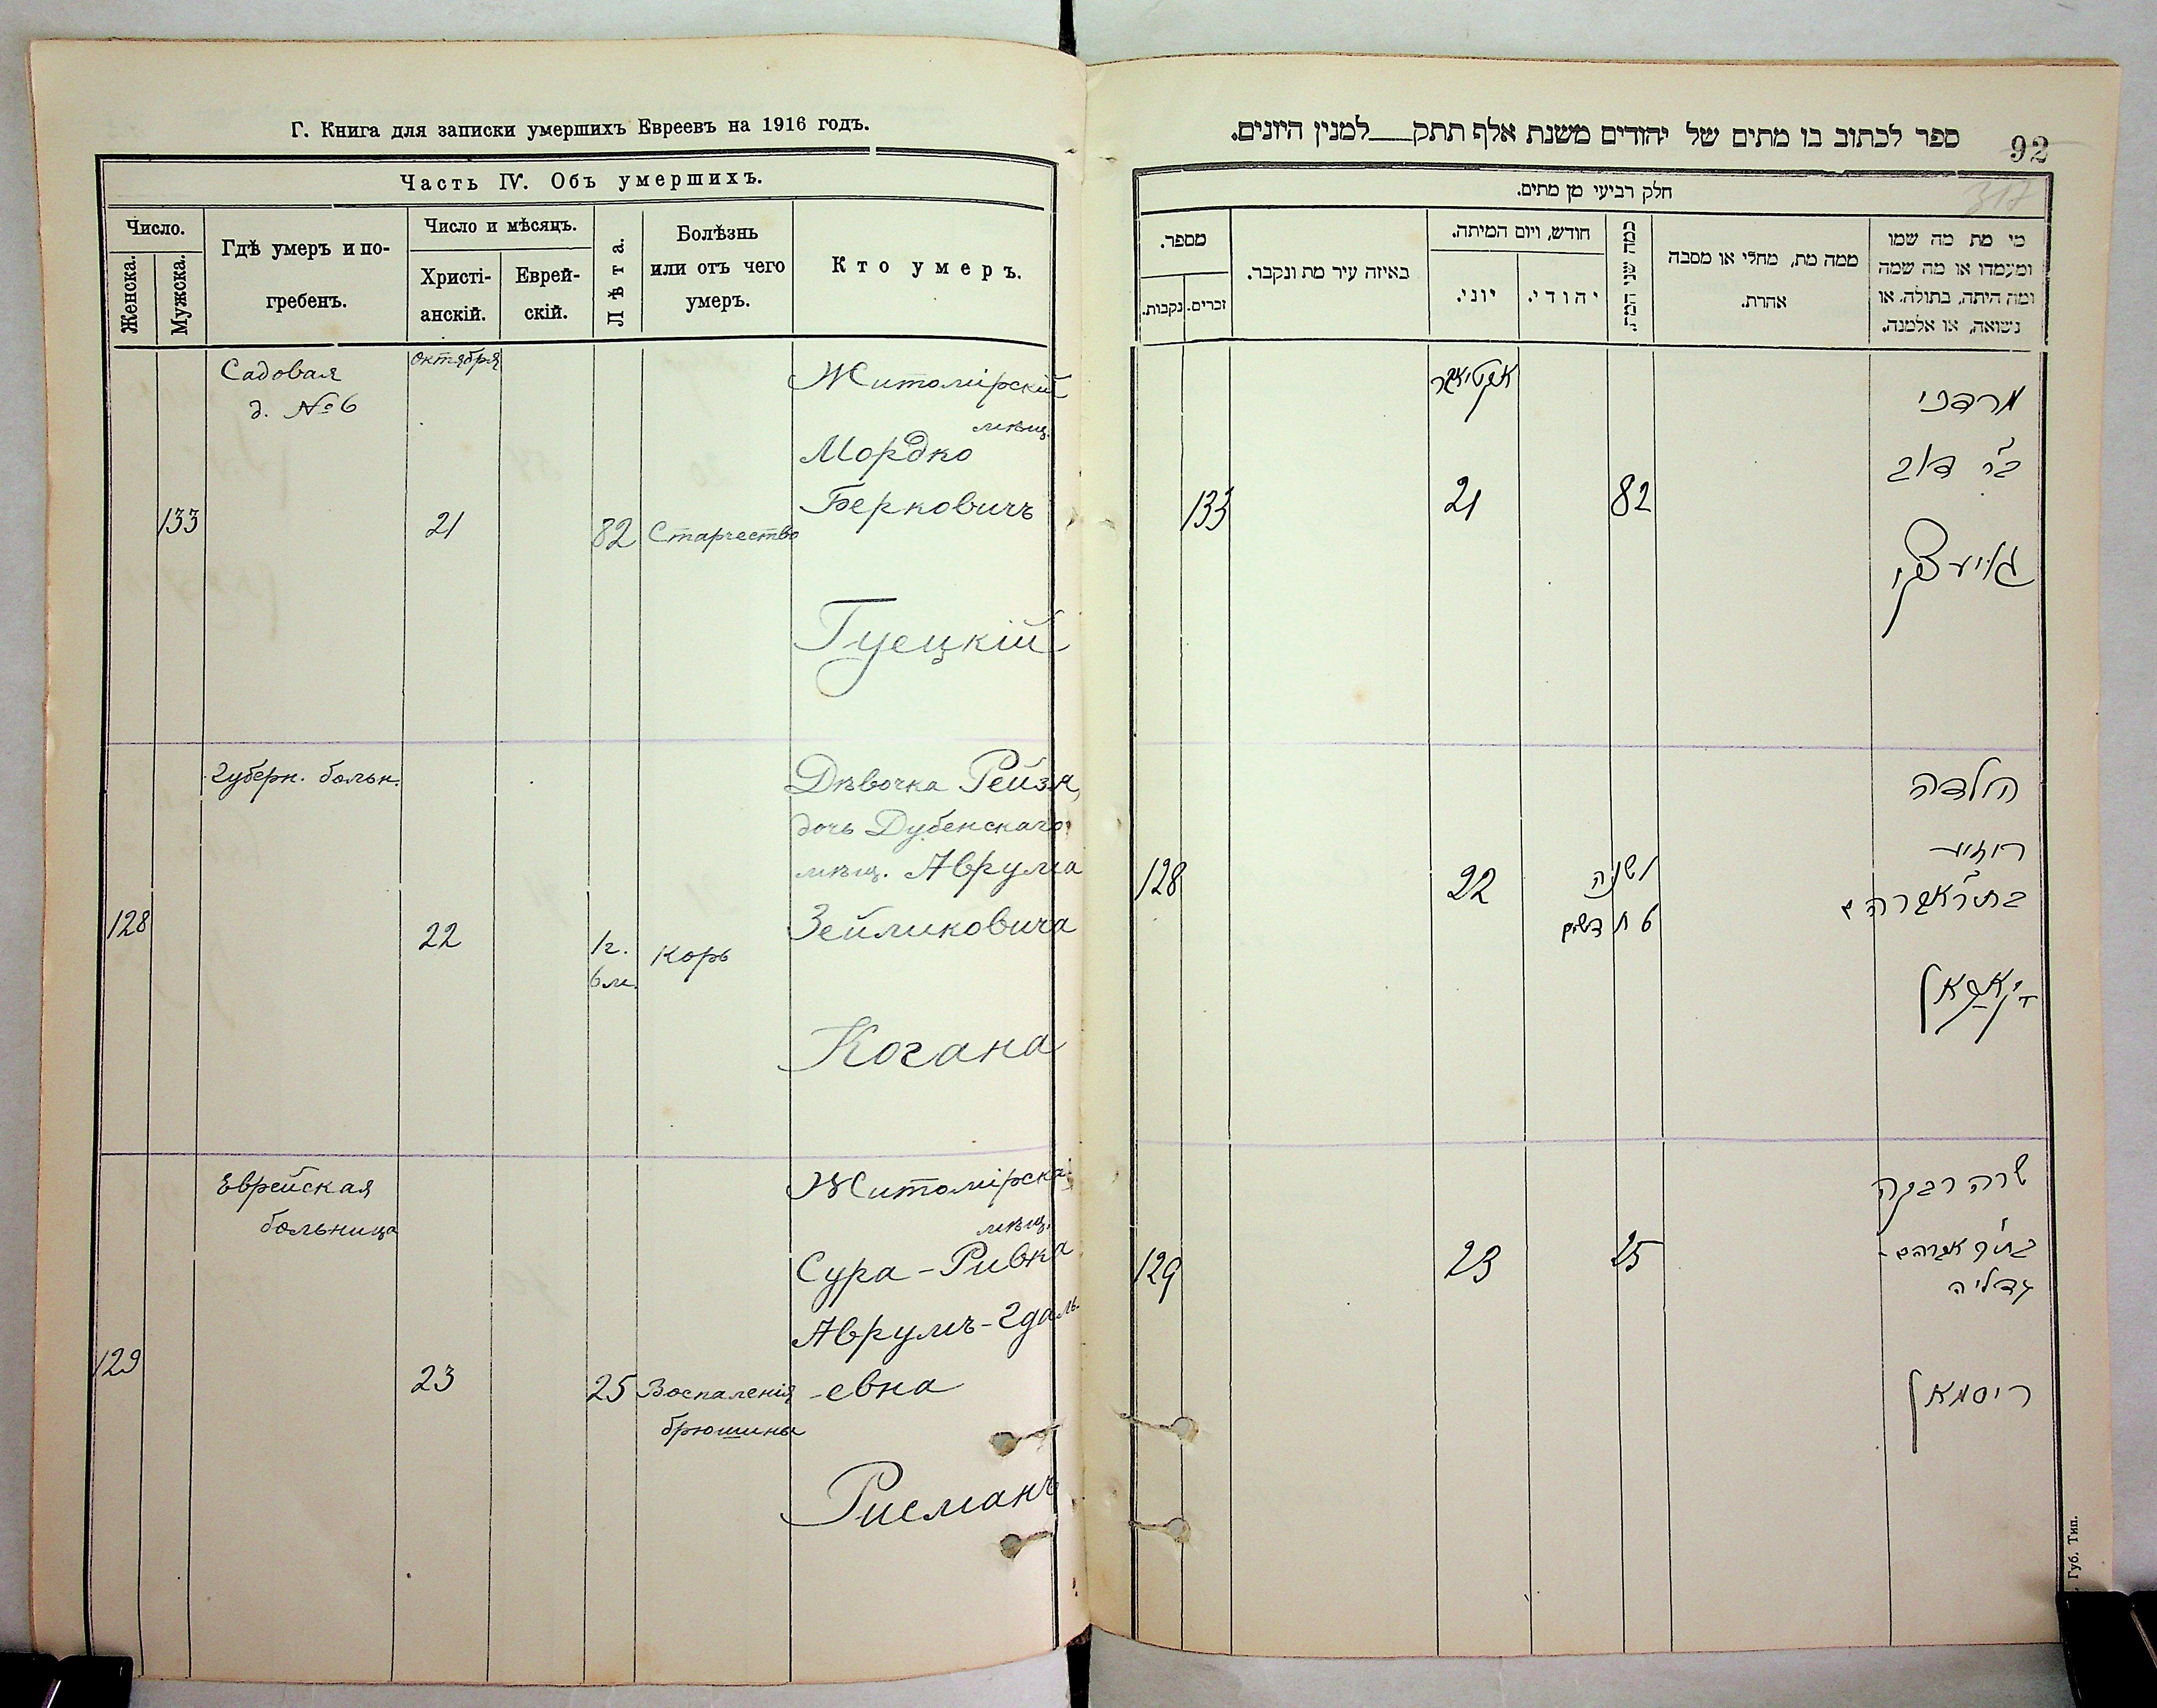 Г. Книга для записки умершихъ Евреевъ на 1916 годъ.
Часть IV. Объ умершихъ.
Число.
Женска.
Мужска.
Гдѣ умеръ и по-
гребенъ.
Число и мѣсяцъ.
Христі-
анскій.
Еврей-
скій.
Лѣта.
Болѣзнь
или отъ чего
умеръ.
Кто умеръ.
Садовая
д. № 6
октября
133
21
82
Старчество
Житомірскій
мѣщ.
Мордко
Берковичъ
Гуецкій
Губерн. больн.
128
22
1 г.
6 м.
Корь
Дѣвочка Рейзя,
дочь Дубенскаго
мѣщ. Аврума
Зейликовича
Когана
Еврейская
больница
129
23
25
Воспаленія
брюшины
Житомірска
мѣщ.
Сура-Ривка
Аврумъ-Гдаль-
-евна
Рисманъ
ספר לכתוב בו מתים של יהודים משנת אלף תתק למנין היונים.
92
317
חלק רביעי מן מתים.
מספר.
זכרים.
נקבות.
באיזה עיר מת ונקבר.
חודש, ויום המיתה.
יוני.
יהודי.
כמה שני המת.
ממה מת, מחלי או מסבה
אהרת.
מי מת מה שמו
ומעמדו או מה שמה
ומה היתה, בתולה, או
נשואה, או אלמנה.
אקטיאבר
133
21
82
מרדכי
ב״ר דוב
128
22
1 שנה
6 חדשים
הילדה
רויזע
בת ר׳ אברהם
קאגאן
129
23
25
שרה רבקה
בת ר׳ אברהם-
גדליה
ריסמאן
Губ. Тип.